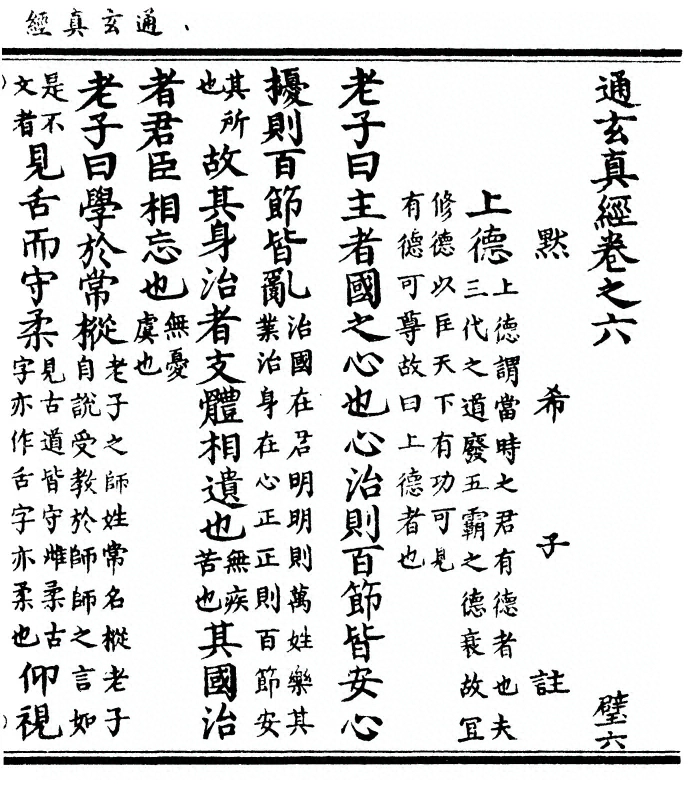 通玄真經
通玄真經卷之六 璧六
默希子註
上德上德謂當時之君有德者也夫
三代之道廢五霸之德衰故宜
修德以匡天下有功可見
有德可尊故曰上德者也
老子曰主者國之心也心治則百節皆安心
擾則百節皆亂治國在君明明則萬姓樂其
業治身在心正正則百節安
其所也故其身治者支體相遺也無疾苦也其國治
者君臣相忘也無憂虞也
老子曰學於常樅老子之師姓常名樅老子
自說受教於師師之言如
是不文者見舌而守柔見古道皆守雌柔古字亦作舌字亦柔也仰視